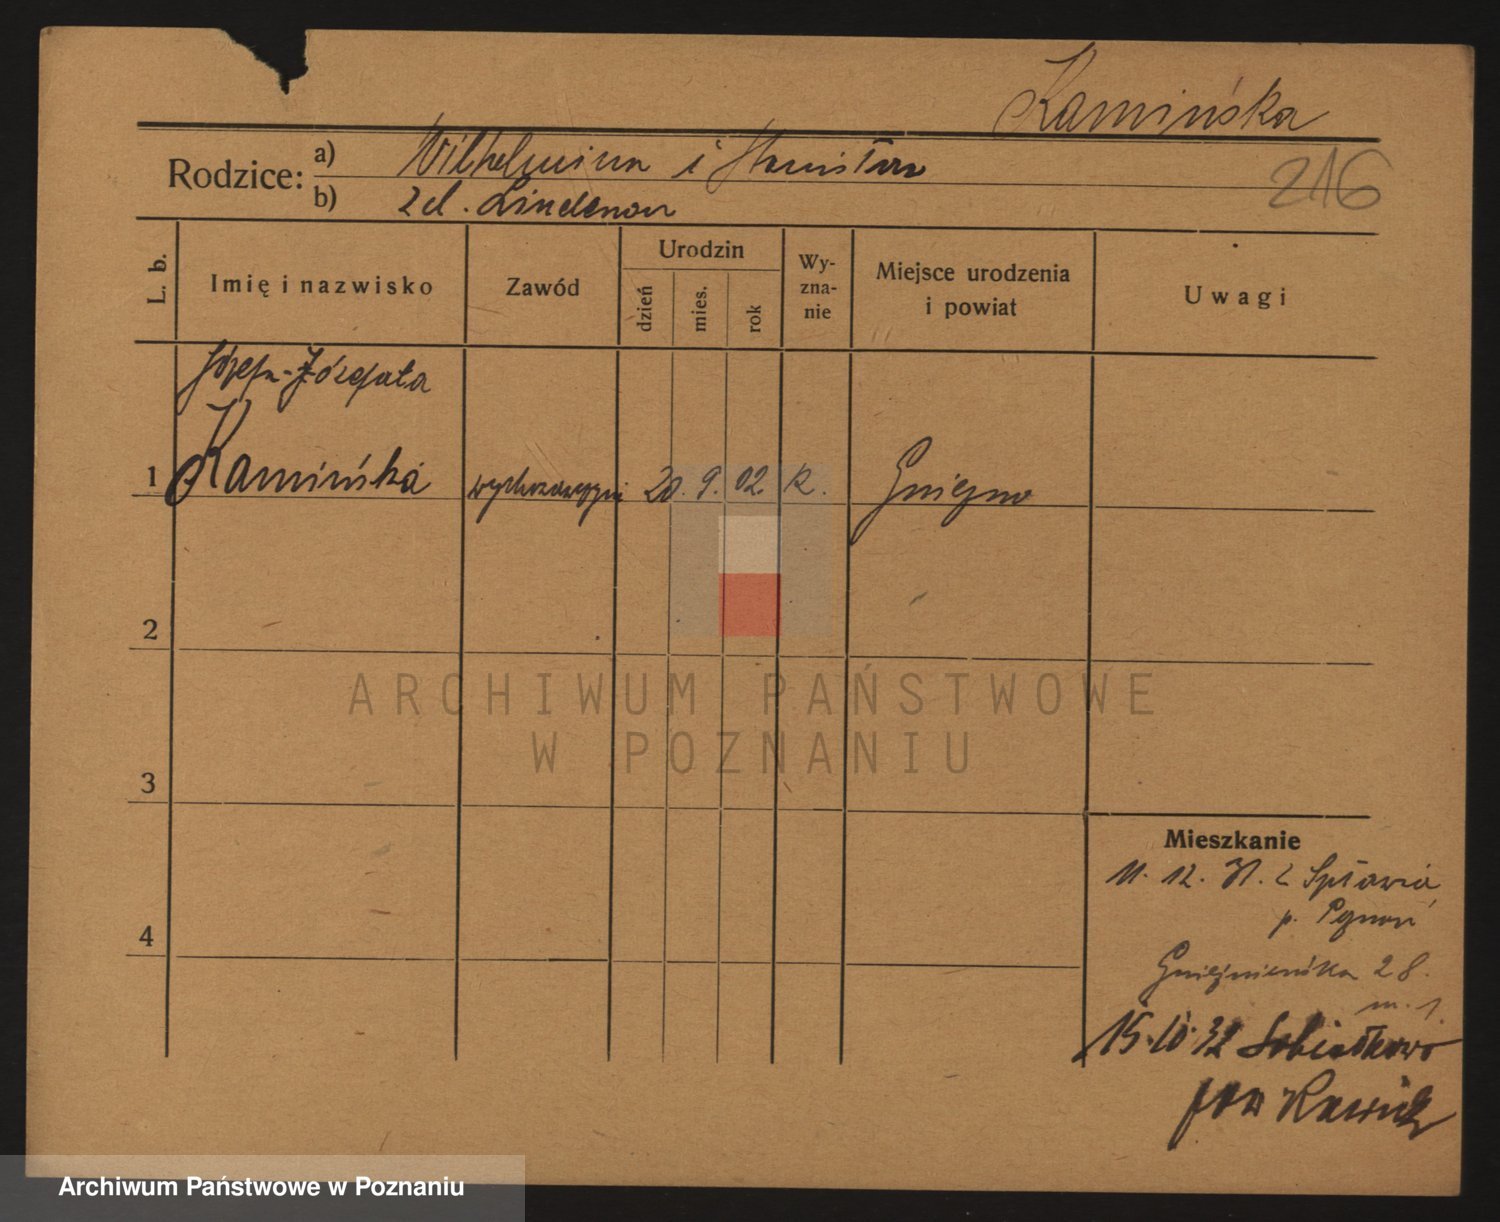 Kamińska
Rodzice: a) Wilhelmina i Stanisław
b) zd. Lindenau
216
L. b. Imię i nazwisko Zawód Urodzin dzień mies. rok Wy-zna-nie Miejsce urodzenia i powiat Uwagi
Józefa-Józefata
1 Kamińska 20. 9. 02. k. Gniezno
2
ARCHIWUM PAŃSTWOWE
W POZNANIU
3
Mieszkanie
11. 12. 31. z Spławia
p. Poznań
4
Gnieźnieńska 28.
m. 1.
15. 10. 32 Sobiałkowo
pow Rawicz
Archiwum Państwowe w Poznaniu